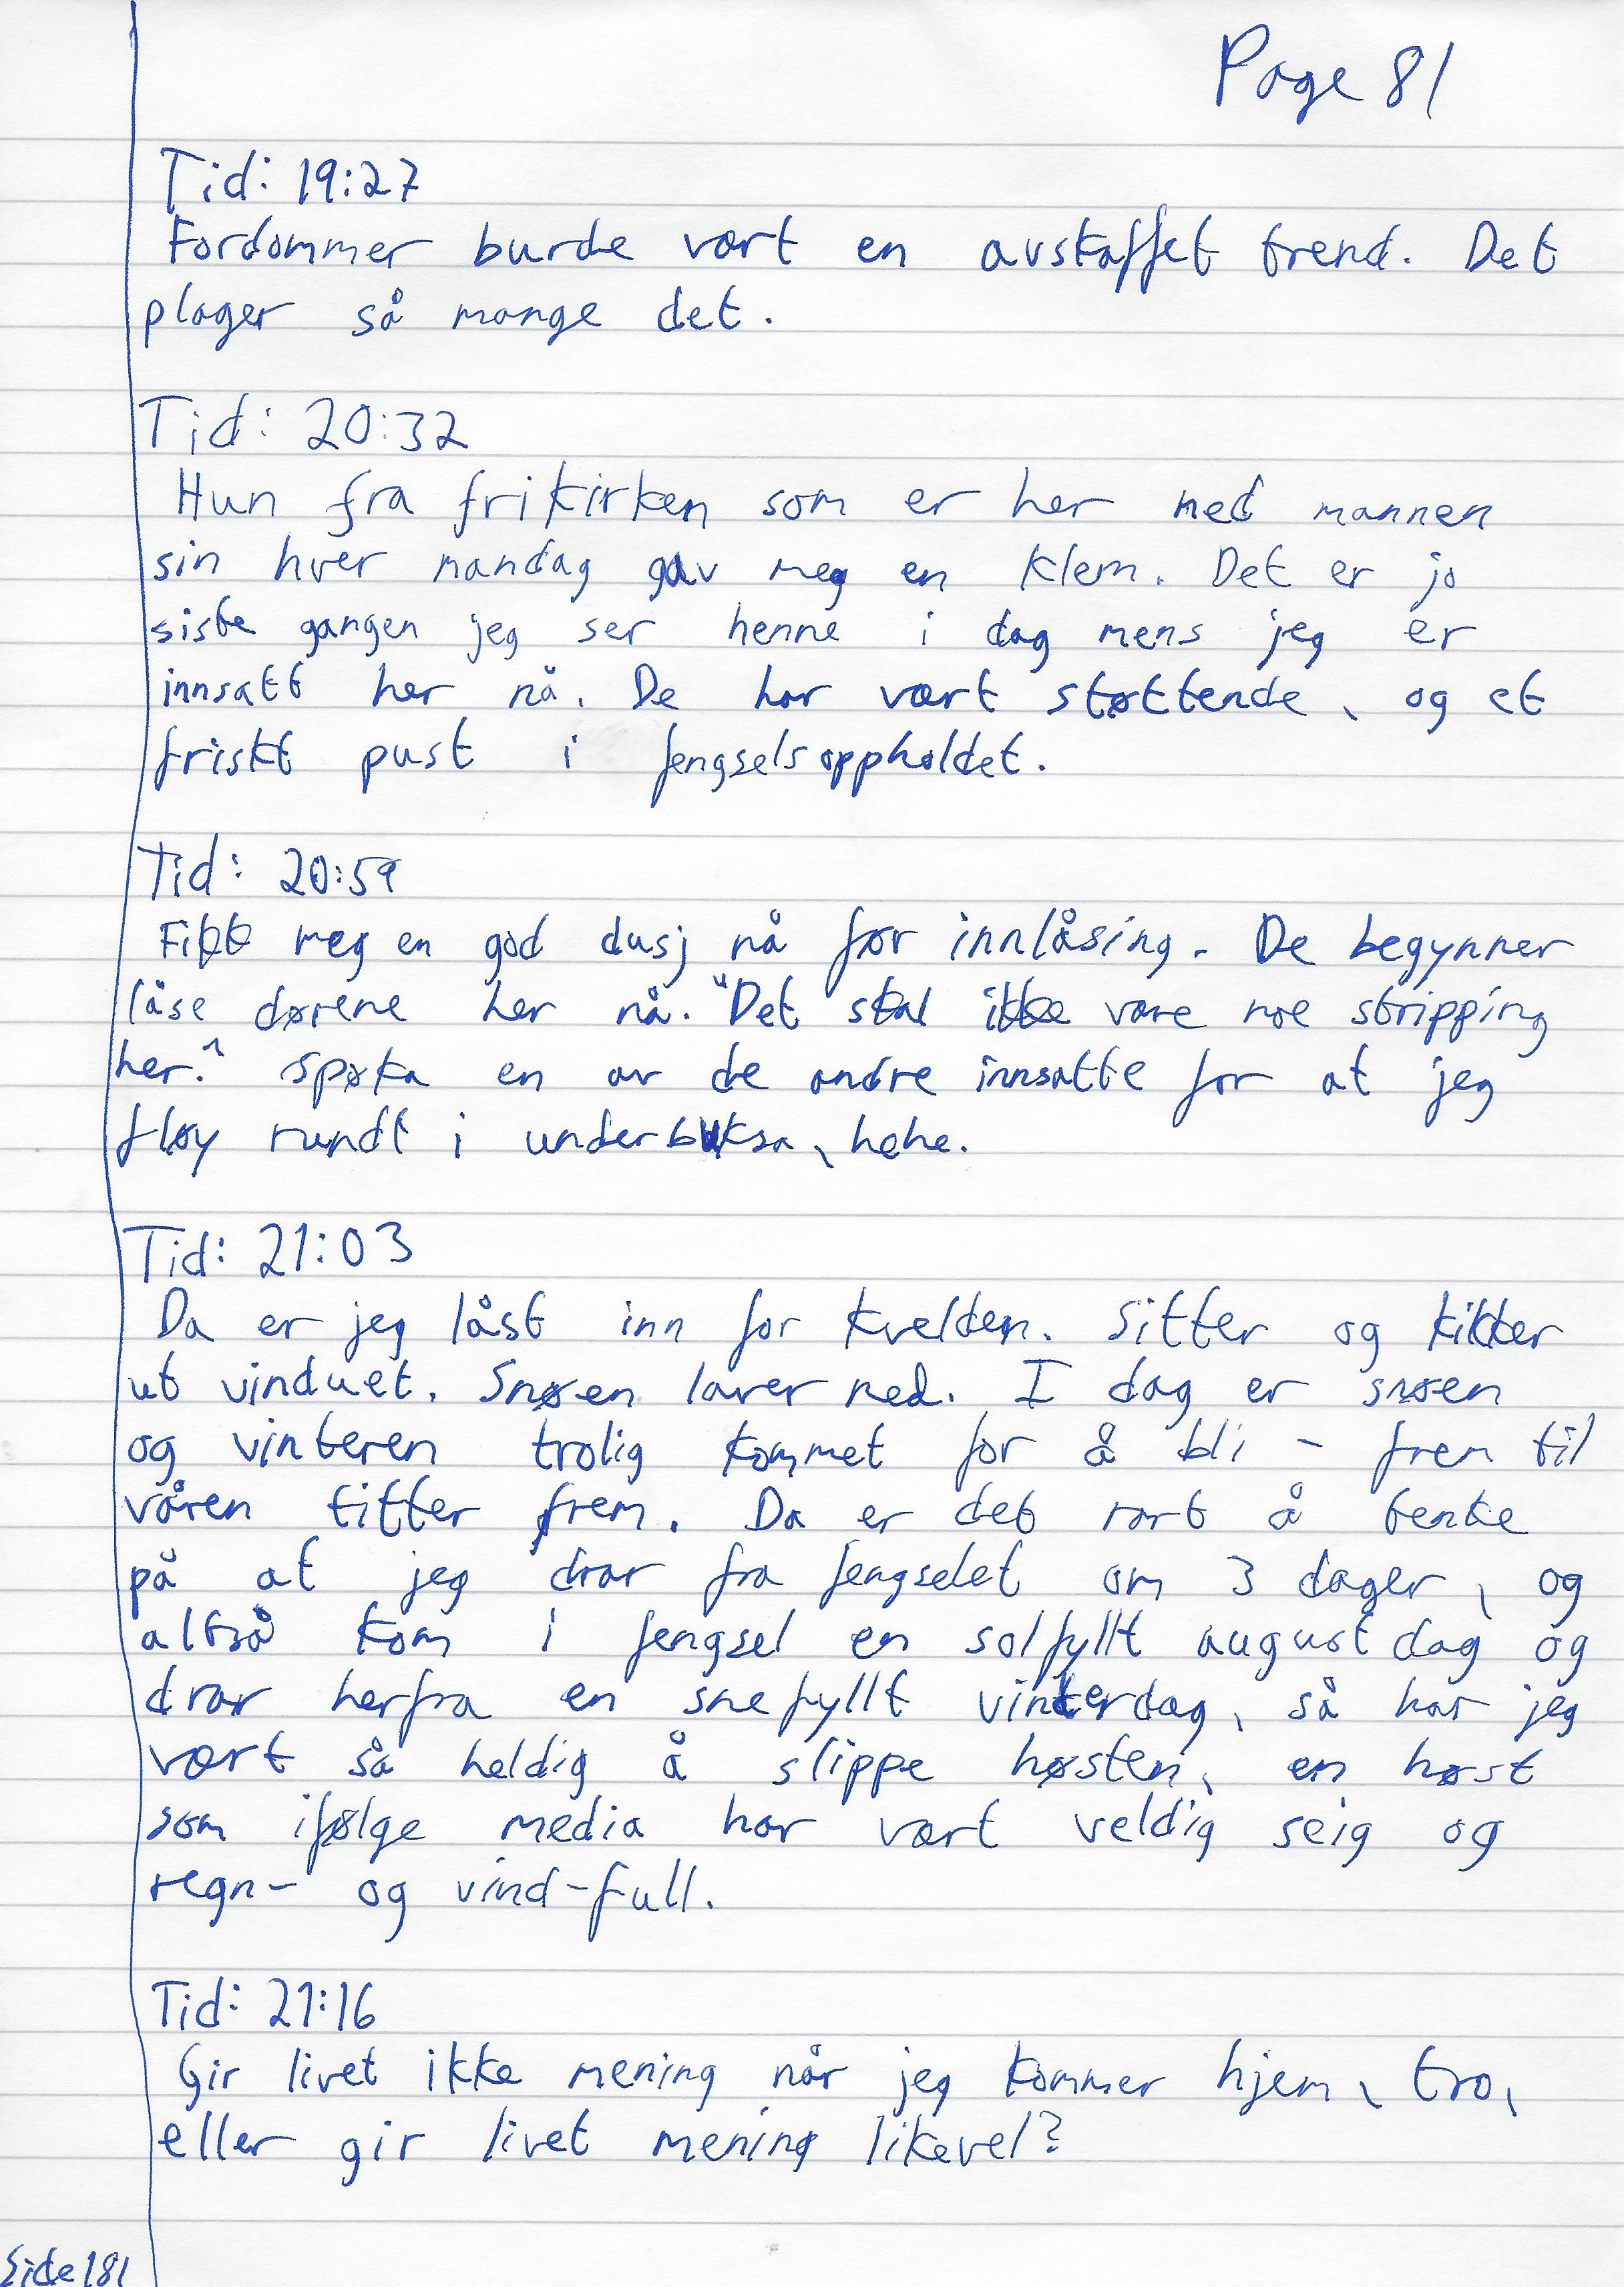 Page 81
Tid: 19:27
Fordommer burde vært en avskaffet trend. Det
plager så mange det.
Tid: 20:32
Hun fra frikirken som er her med mannen
sin hver mandag gav meg en klem. Det er jo
siste gangen jeg ser henne i dag mens jeg er
innsatt her nå. De har vært støttende, og et
friskt pust i fengselsoppholdet.
Tid: 20:59
Fikk meg en god dusj nå før innlåsing. De begynner
låse dørene her nå. "Det skal ikke være noe stripping
her." spøka en av de andre innsatte for at jeg
fløy rundt i underbuksa, hehe.
Tid: 21:03
Da er jeg låst inn for kvelden. Sitter og kikker
ut vinduet. Snøen laver ned. I dag er snøen
og vinteren trolig kommet for å bli - frem til
våren titter frem. Da er det rart å tenke
på at jeg drar fra fengselet om 3 dager, og
altså kom i fengsel en solfyllt august dag og
drar herfra en snefyllt vinterdag, så har jeg
vært så heldig å slippe høsten, en høst
som ifølge media har vært veldig seig og
regn- og vind-full.
Tid: 21:16
Gir livet ikke mening når jeg kommer hjem, tro,
eller gir livet mening likevel?
Side 181